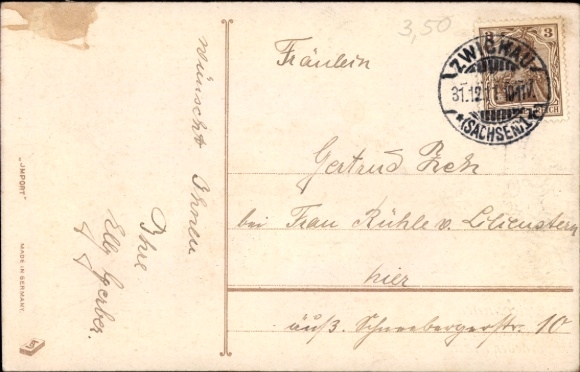 wünscht Ihnen
Ihre
Elly Gerber.
"IMPORT"
MADE IN GERMANY
3,50
3
ZWICKAU
31.12.11. 10-11V.
*(SACHSEN)1*
Fräulein
Gertrud
bei Frau Rühle v. Lilienstern
hier
äuß. Schneebergerstr. 10